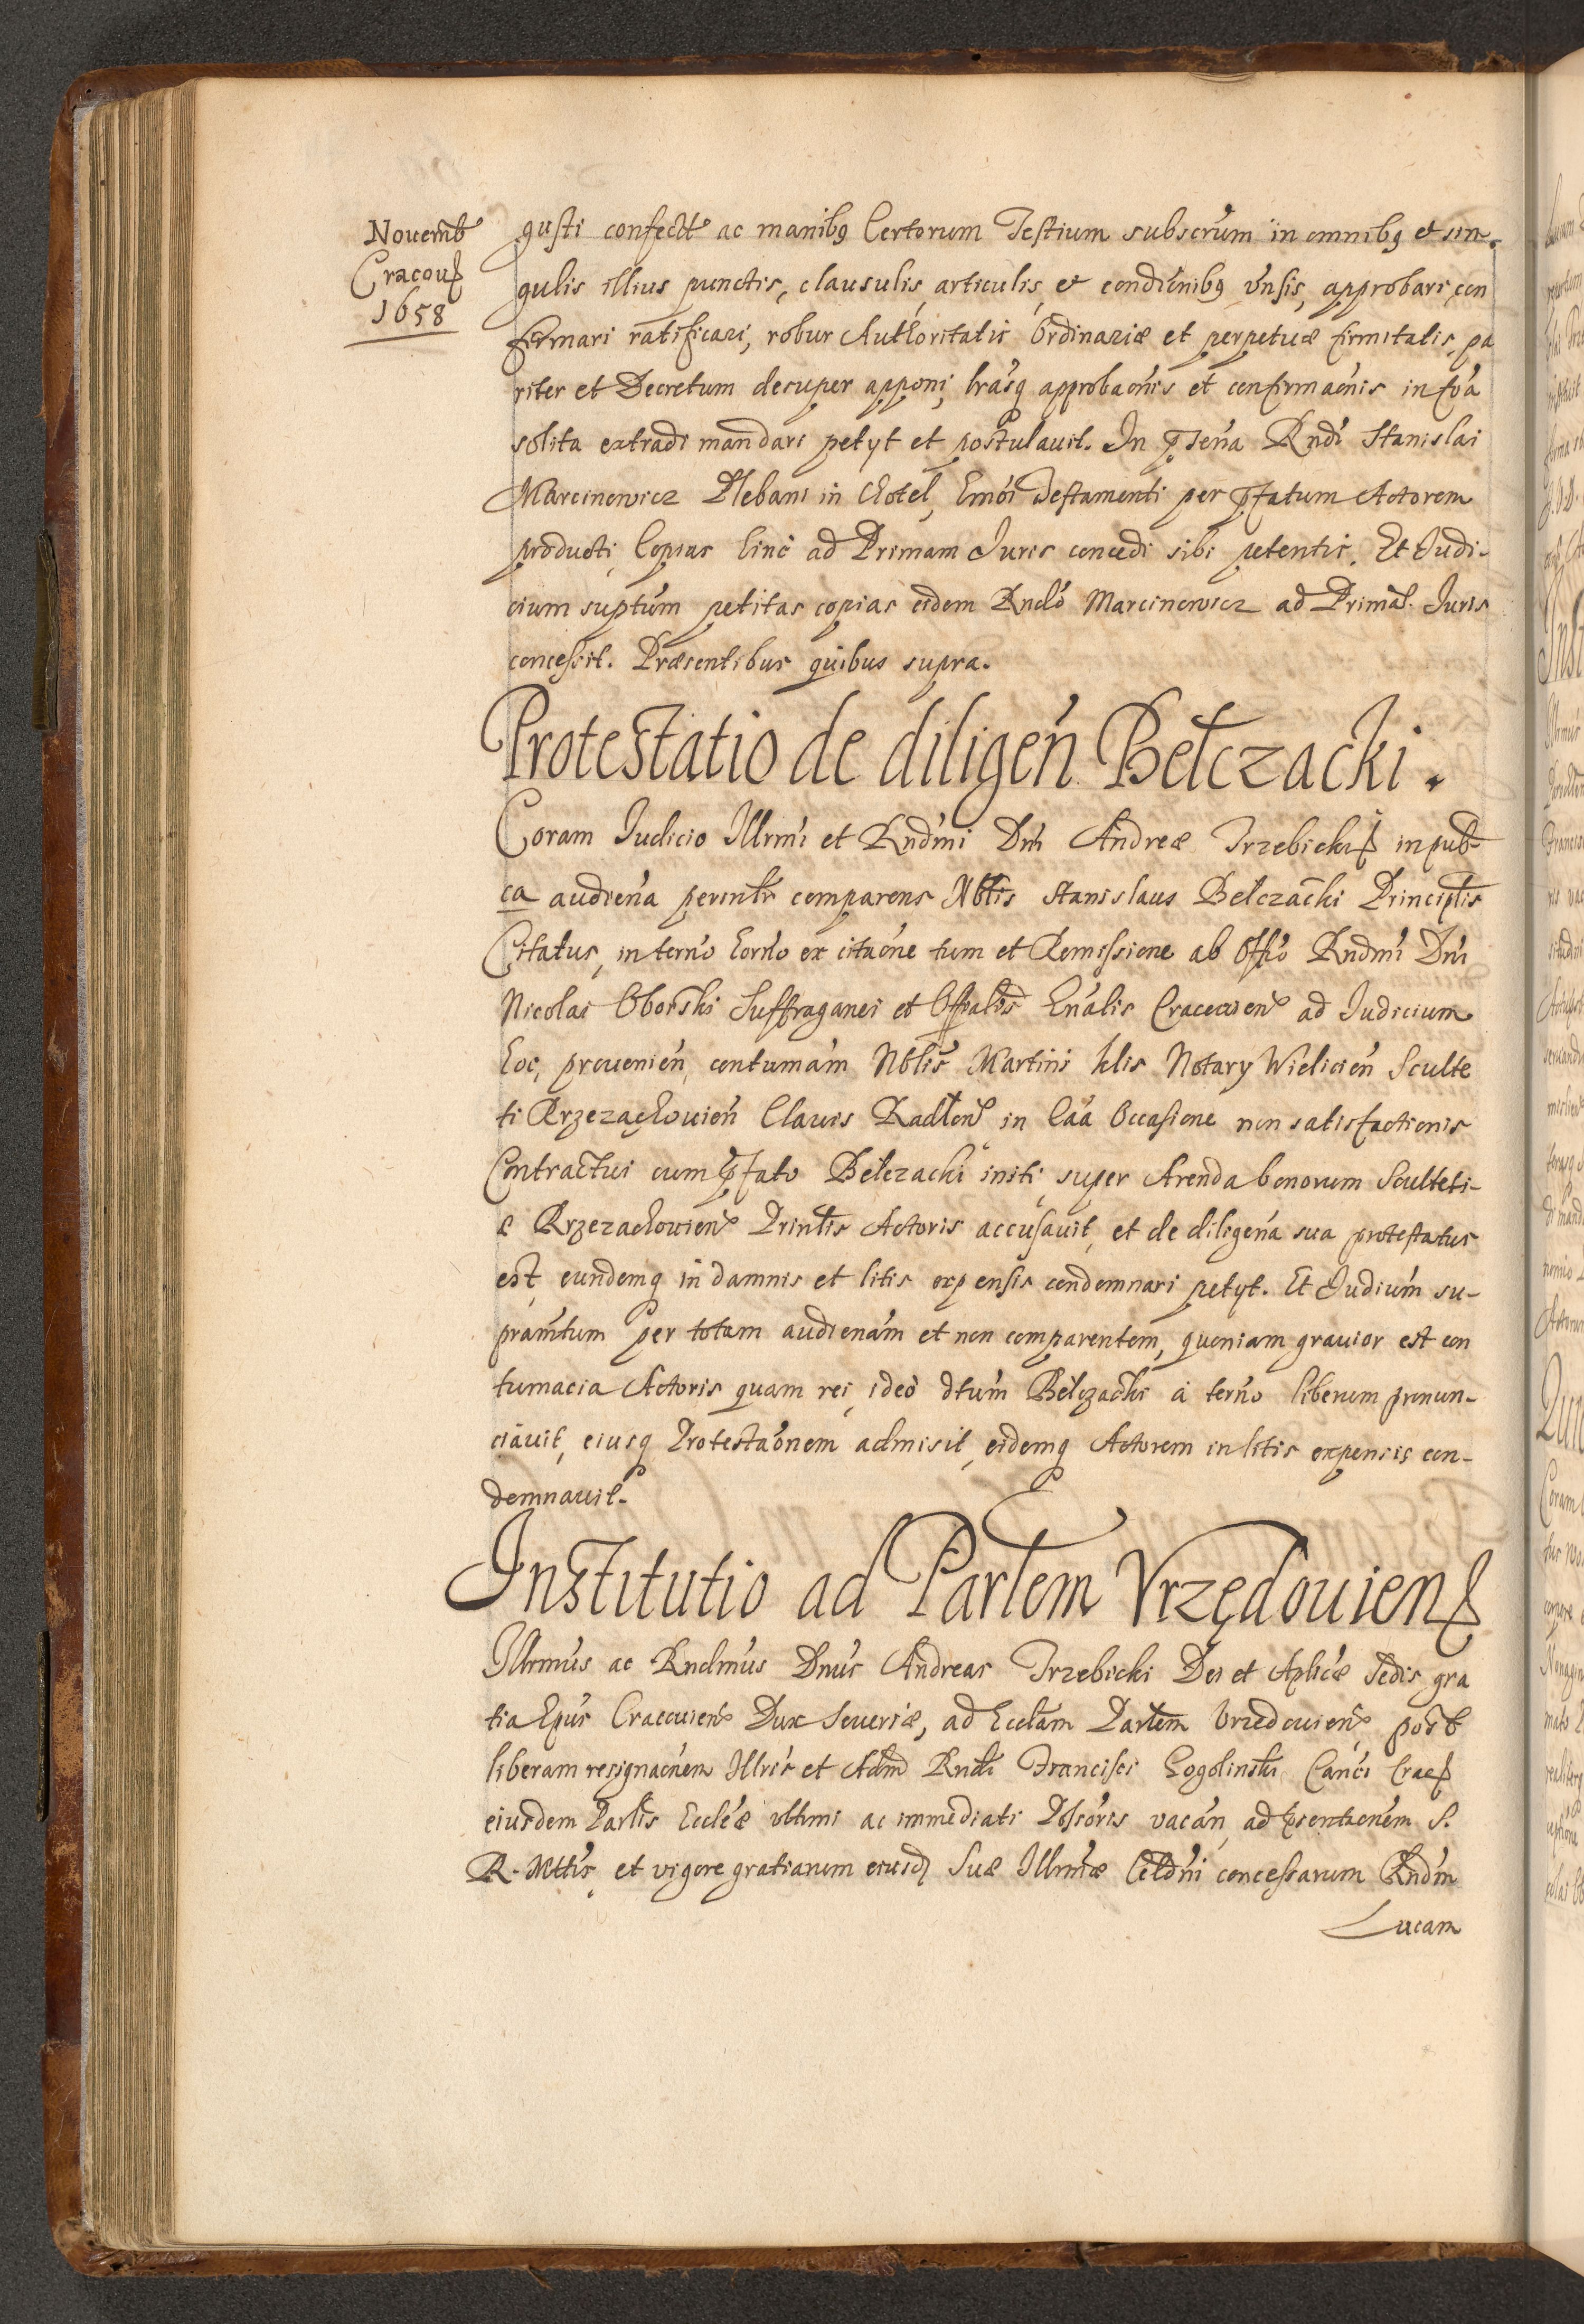 Novemb
Cracoů
1658
gusti confectt ac manibq Certorum Testium subscrům in omnibq et sin-
gulis illius punctis, clausulis, articulis, et condiĉnibq vnsis, approbari, con
firmari ratificari, robur Authoritatis Ordinariæ et perpetuæ firmitatis, pa
riter et Decretum desuper apponi, lrasq approbaoñis et confirmaoñis in foa
solita extradi mandari petyt et postulavit. In Pseña Rndi Stanislai
Marcinowicz Plebani in Chotel, hmoi Testamenti per Pfatum Actorem
producti, Copias hinc ad Primam Juris concedi sibi petentis. Et Judi-
cium suptum petitas copias eidem Rndo Marcinowicz ad Primā. Juris
concessit. Præsentibus quibus supra.
Protestatio de diligeñ Bełczacki.
Coram Judicio Illrmi et Rndmi Dni Andreæ Trzebicki in pub
ca audieña persnlr comparens Nblis Stanislaus Bełczacki Principlis
Citatus, in termo horno ex citaone tum et Remissione ab Offio Rndmi Dni
Nicolai Oborski Suffraganei et Offialis Gnalis Cracovien ad Judicium
hoc, provenien, contumam Nblis Martini Notary Wielicien Sculte
ti Krzezachovien Clavis Radlen in Caa Occasione non satisfactionis
Contractui cum Pfato Bełczacki initi, super Arenda bonorum Sculteti-
æ Krzezachovien Prinlis Actoris accusavit, et de diligeña sua protestatus
est, eundemq in damnis et litis expensis condemnari petyt. Et Judium su-
pramtum per totam audienam et non comparentem, quoniam gravior est con
tumacia Actoris quam rei, ideo dtum Bełczacki a termo liberum pronun-
ciavit, eiusq Protestaonem admisit, eidemq Actorem in litis expensis con-
demnavit.
Institutio ad Parlem Vrzędovien
Illrmus ac Rndmus Dnus Andreas Trzebicki Dei et Aplicæ Sedis gra
tia Epus Cracovien Dux Severiæ, ad Ecclam Parlem Vrzedovien post
liberam resignaonem Illris et Adm Rndi Francisci Rogolinski Canci Crac
eiusdem Parlis Eccleæ vltimi ac immediati Possoris vacan, ad Psentaonem S.
R. Mttis, et vigore gratiarum eiusd Suæ Illrmæ Celdni concessarum Rndm
Lucam